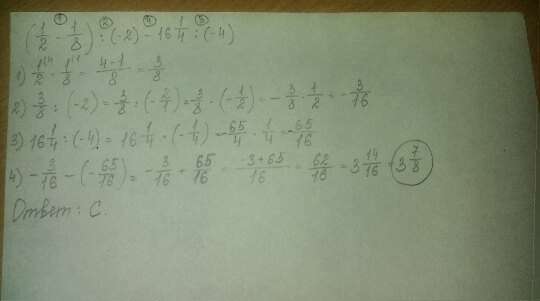 ① ② ④ ③
(1/2 - 1/8) : (-2) - 16 1/4 : (-4)
1) 1/2 - 1/8 = 4-1/8 = 3/8
2) 3/8 : (-2) = 3/8 : (-2/1) = 3/8 · (-1/2) = -3/8 · 1/2 = -3/16
3) 16 1/4 : (-4) = 16 1/4 · (-1/4) = -65/4 · 1/4 = -65/16
4) -3/16 - (-65/16) = -3/16 + 65/16 = -3+65/16 = 62/16 = 3 14/16 = 3 7/8
Ответ: C.